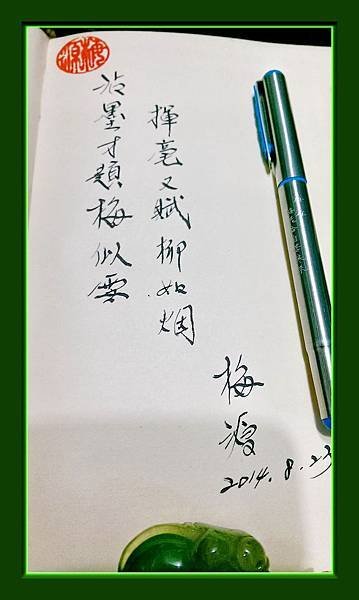 沾墨才題梅似雪
揮毫又賦柳如烟
梅
2014.8.23